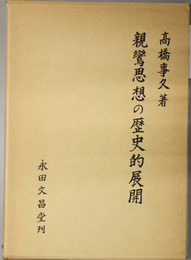 高橋事久著
親鸞思想の歴史的展開
永田文昌堂刊